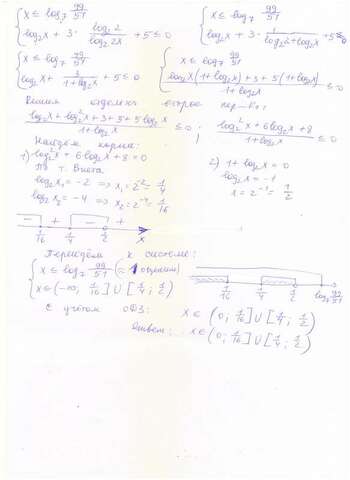 { x ≤ log₇ 99/51
{ log₂x + 3 · log₂2/log₂2x + 5 ≤ 0
{ x ≤ log₇ 99/51
{ log₂x + 3 · 1/(log₂2 + log₂x) + 5 ≤ 0
{ x ≤ log₇ 99/51
{ log₂x + 3/(1 + log₂x) + 5 ≤ 0
{ x ≤ log₇ 99/51
{ (log₂x(1 + log₂x) + 3 + 5(1 + log₂x))/(1 + log₂x) ≤ 0
Решим отдельно второе нер-во:
(log₂x + log₂²x + 3 + 5 + 5log₂x)/(1 + log₂x) ≤ 0 ; (log₂²x + 6log₂x + 8)/(1 + log₂x) ≤ 0
Найдём корни:
1) log₂²x + 6log₂x + 8 = 0
По т. Виета
log₂x₁ = -2 => x₁ = 2⁻² = 1/4
log₂x₂ = -4 => x₂ = 2⁻⁴ = 1/16
2) 1 + log₂x = 0
log₂x = -1
x = 2⁻¹ = 1/2
- + - +
1/16 1/4 1/2 x
Перейдём к системе:
{ x ≤ log₇ 99/51
{ x ∈ (-∞; 1/16] ∪ [1/4; 1/2)
1/16 1/4 1/2 log₇ 99/51
С учётом ОДЗ: x ∈ (0; 1/16] ∪ [1/4; 1/2)
Ответ: x ∈ (0; 1/16] ∪ [1/4; 1/2)